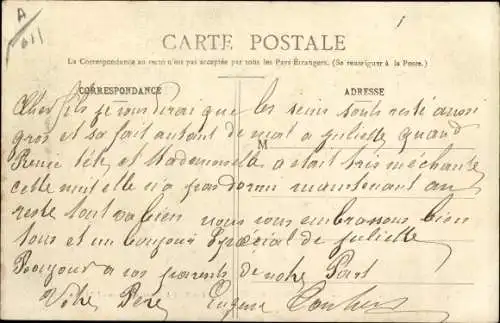 A
611
CARTE POSTALE
La Correspondance au recto n'est pas acceptée par tous les Pays Étrangers. (Se renseigner à la Poste.)
CORRESPONDANCE
ADRESSE
M
Cher fils je vous dirai que les seins sont resté aussi
gros et sa fait autant de mal a juliette quand
René tête et Mademoiselle a était très méchante
cette nuit elle n'a pas dormi maintenant au
reste tout va bien nous vous embrassons bien
tous et un bonjour Spécial de juliette
Bonjour a vos parents de notre Part
Votre Père Eugène